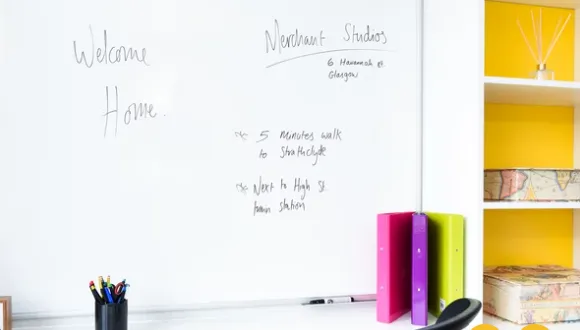 Welcome
Home.
Merchant Studios
6 Havannah St.
Glasgow
5 minutes walk
to Strathclyde
Next to High St.
train station